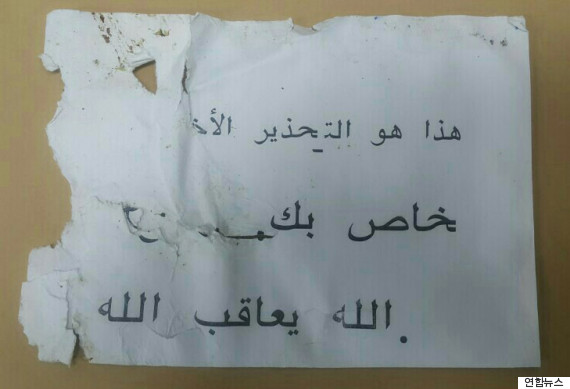 هذا هو التحذير
خاص بك
الله يعاقب الله.
연합뉴스